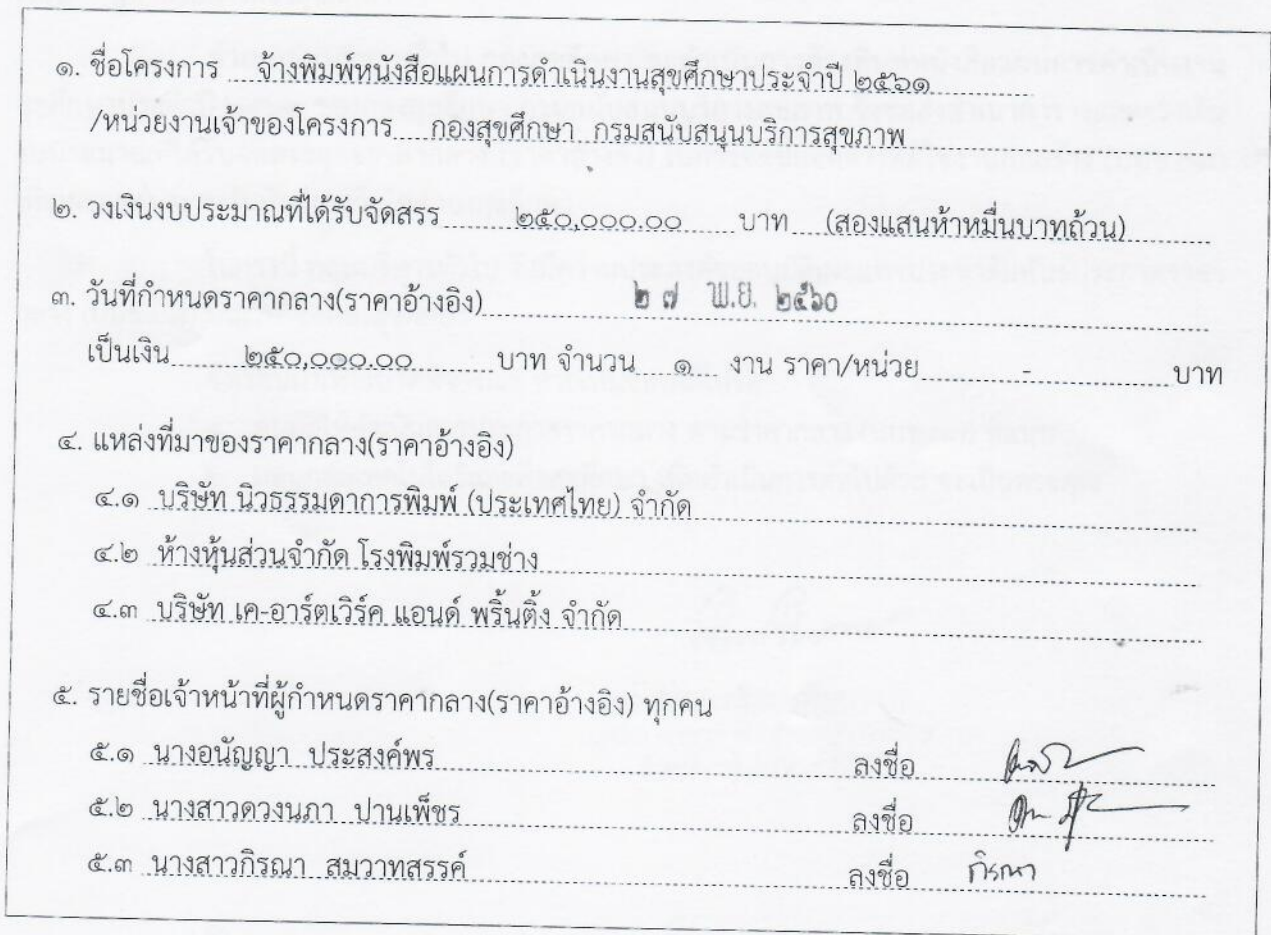 ๑. ชื่อโครงการ จ้างพิมพ์หนังสือแผนการดำเนินงานสุขศึกษาประจำปี ๒๕๖๑
/หน่วยงานเจ้าของโครงการ กองสุขศึกษา กรมสนับสนุนบริการสุขภาพ
๒. วงเงินงบประมาณที่ได้รับจัดสรร ๒๕๐,๐๐๐.๐๐ บาท (สองแสนห้าหมื่นบาทถ้วน)
๓. วันที่กำหนดราคากลาง(ราคาอ้างอิง) ๒๗ พ.ย. ๒๕๖๐
เป็นเงิน ๒๕๐,๐๐๐.๐๐ บาท จำนวน ๑ งาน ราคา/หน่วย - บาท
๔. แหล่งที่มาของราคากลาง(ราคาอ้างอิง)
๔.๑ บริษัท นิวธรรมดาการพิมพ์ (ประเทศไทย) จำกัด
๔.๒ ห้างหุ้นส่วนจำกัด โรงพิมพ์รวมช่าง
๔.๓ บริษัท เค-อาร์ตเวิร์ค แอนด์ พริ้นติ้ง จำกัด
๕. รายชื่อเจ้าหน้าที่ผู้กำหนดราคากลาง(ราคาอ้างอิง) ทุกคน
๕.๑ นางอนัญญา ประสงค์พร ลงชื่อ
๕.๒ นางสาวดวงนภา ปานเพ็ชร ลงชื่อ
๕.๓ นางสาวกิรณา สมวาทสรรค์ ลงชื่อ กิรณา